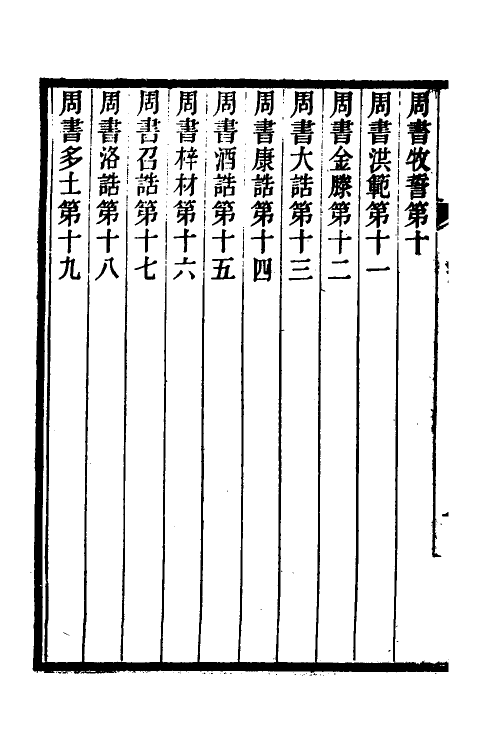 周書牧誓第十
周書洪範第十一
周書金縢第十二
周書大誥第十三
周書康誥第十四
周書酒誥第十五
周書梓材第十六
周書召誥第十七
周書洛誥第十八
周書多士第十九